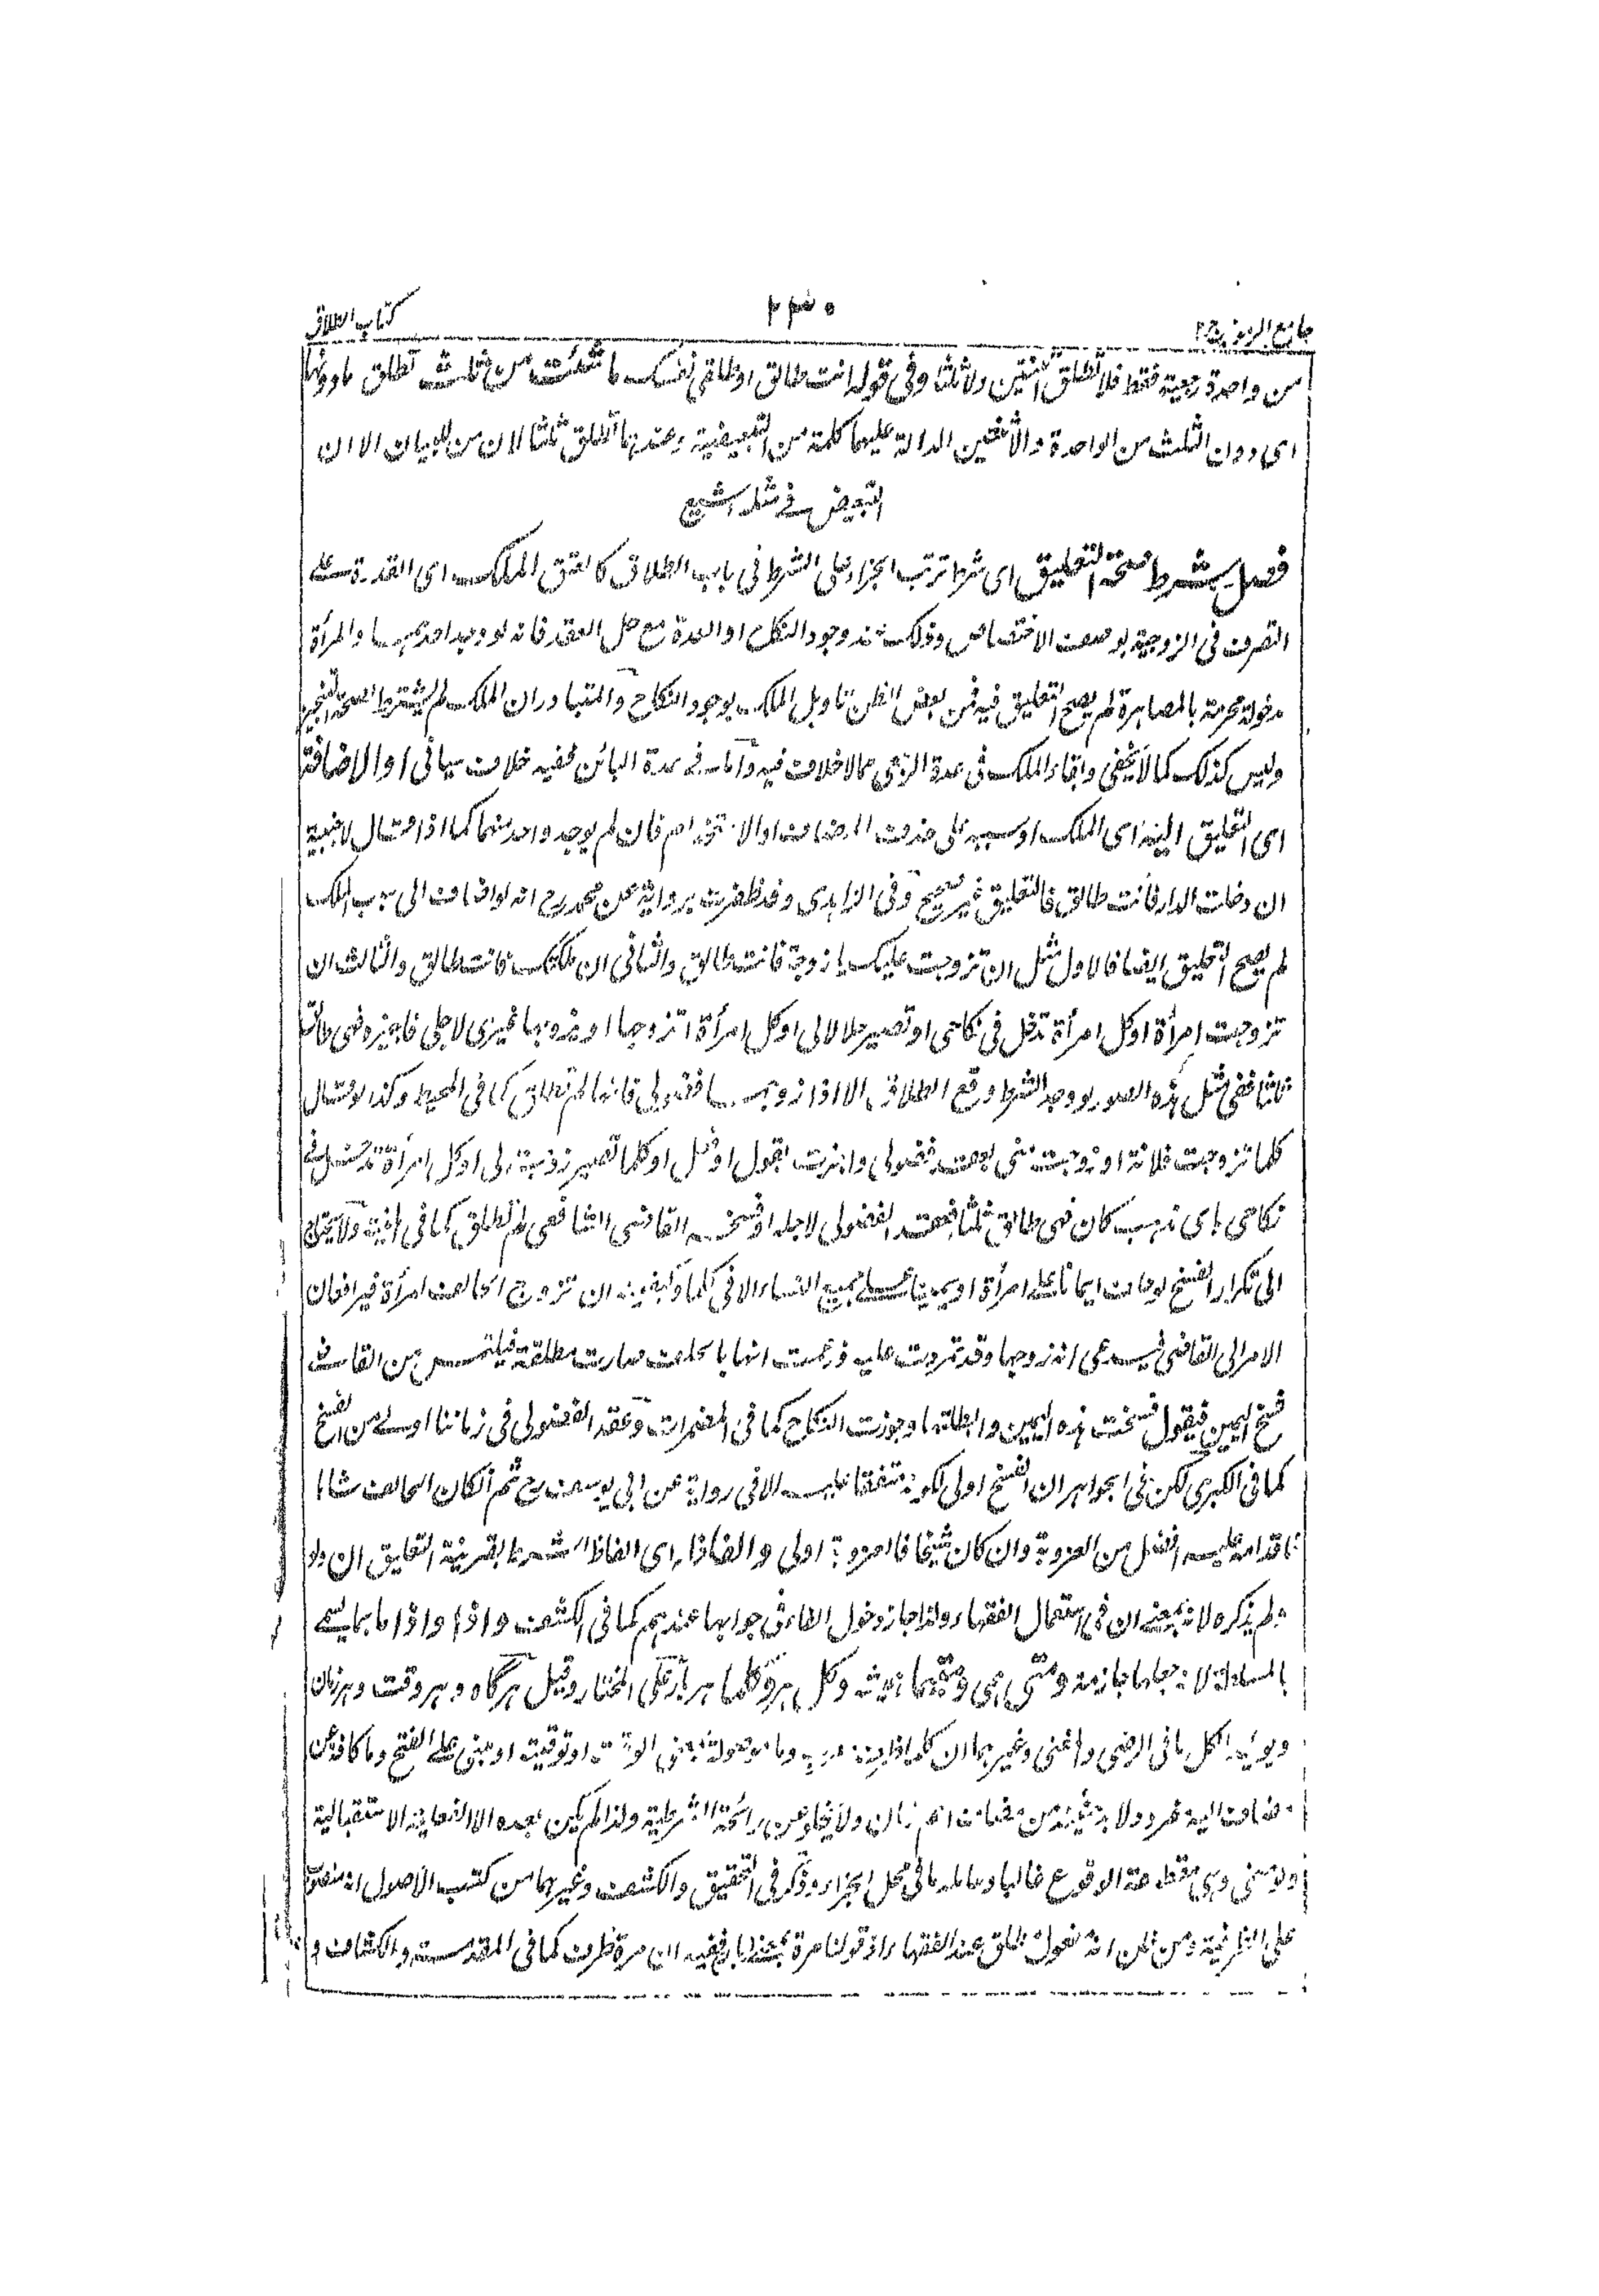 جامع الرموز ج ٢
٢٣٠
كتاب الطلاق
من واحدة رجعية فقط فلا تطلق ثنتين ولا ثلثا وفى قوله انت طالق او طلقى نفسك ما شئت من ثلث تطلق ما دونها
اى دون الثلث من الواحدة والاثنتين الدالة عليهما كلمة من التبعيضية وعندهما تطلق ثلثا لان من للبيان الا ان
التبعيض فى مثله اشيع
فصل شرط صحة التعليق اى شرط ترتب الجزاء على الشرط فى باب الطلاق كالعتق الملك اى القدرة على
التصرف فى الزوجية بوصف الاختصاص وذلك عند وجود النكاح او العدة مع حل العقد فانه لو وجد احدهما والمرأة
مدخولة محرمة بالمصاهرة لم يصح التعليق فيه فمن بعض الظن تاويل الملك بوجود النكاح والمتبادر ان الملك لم يشترط لصحة التنجيز
وليس كذلك كما لا يخفى وابقاء الملك فى عدة الرجعى مما لا خلاف فيه واما فى عدة البائن ففيه خلاف سياتى او الاضافة
اى التعليق اليه اى الملك او سببه على حذف المضاف او الاستخدام فان لم يوجد واحد منهما كما اذا قال لاجنبية
ان دخلت الدار فانت طالق فالتعليق غير صحيح وفى الزاهدى وقد ظفرت برواية عن محمد رح انه لو اضاف الى سبب الملك
لم يصح التعليق ايضا فالاول مثل ان تزوجت عليك يا زوجة فانت طالق والثانى ان ملكتك فانت طالق والثالث ان
تزوجت امرأة او كل امرأة تدخل فى نكاحى او تصير حلالا لى او كل امرأة اتزوجها او يزوجها غيرى لاجلى فاجيزه فهى طالق
ثلثا ففى مثل هذه الصور لو وجد الشرط وقع الطلاق الا اذا زوجها فضولى فانها لم تطلق كما فى المحيط وكذا لو قال
كلما تزوجت فلانة او زوجت نفسى بعقد فضولى واجزت بقول او فعل او كلما تصير زوجة لى او كل امرأة تدخل فى
نكاحى باى مذهب كان فهى طالق ثلثا فعقد الفضولى لاجله او فسخه القاضى الشافعى لم تطلق كما فى المنية ولا يحتاج
الى تكرار الفسخ لو حلف ايمانا على امرأة او يمينا على جميع النساء الا فى كلما وكيفيته ان تزوج الحالف امرأة فيرافعان
الامر الى القاضى فيدعى انه زوجها وقد تمردت عليه وزعمت انها بالحلف صارت مطلقة فيلتمس من القاضى
فسخ اليمين فيقول فسخت هذه اليمين وابطلتها وجوزت النكاح كما فى المضمرات وعقد الفضولى فى زماننا اولى من الفسخ
كما فى الكبرى لكن فى الجواهر ان الفسخ اولى لكونه متفقا عليه الا فى رواية عن ابى يوسف رح ثم ان كان الحالف شابا
فاقدامه عليه افضل من العزوبة وان كان شيخا فالعزوبة اولى والفاظه اى الفاظ الشرط بقرينة التعليق ان ولو
ولم يذكره لانه بمعنى ان فى استعمال الفقهاء ولذا جاز دخول الفاء فى جوابها عندهم كما فى الكشف واذا واذا ما بما يسمى
بالمسلطة لانه جعلها جازمة ومتى هى ومتى ما وكل هر وكلما هر بار على المختار وقيل هر گاه و هر وقت و هر زمان
ويؤيد الكل ما فى الرضى والمغنى وغيرهما ان كلما اذا وما موصولة بمعنى الوقت او توقيتية او مبنى على الفتح وما كافة عن
مضاف اليه مفرد ولا بد حينئذ من مضاف اى زمان ولا يخلو عن رائحة الشرطية ولذا لم يكن بعده الا الفعلية الاستقبالية
ولو معنى وهى مقطوعة الوقوع غالبا وعامله ما فى محل الجزاء وذكر فى التحقيق والكشف وغيرهما من كتب الاصول انه منصوب
على الظرفية ومن ظن انه مفعول مطلق عند الفقهاء اذ قولنا مرة ففيه ان مرة ظرف كما فى المقدسة والكشاف و